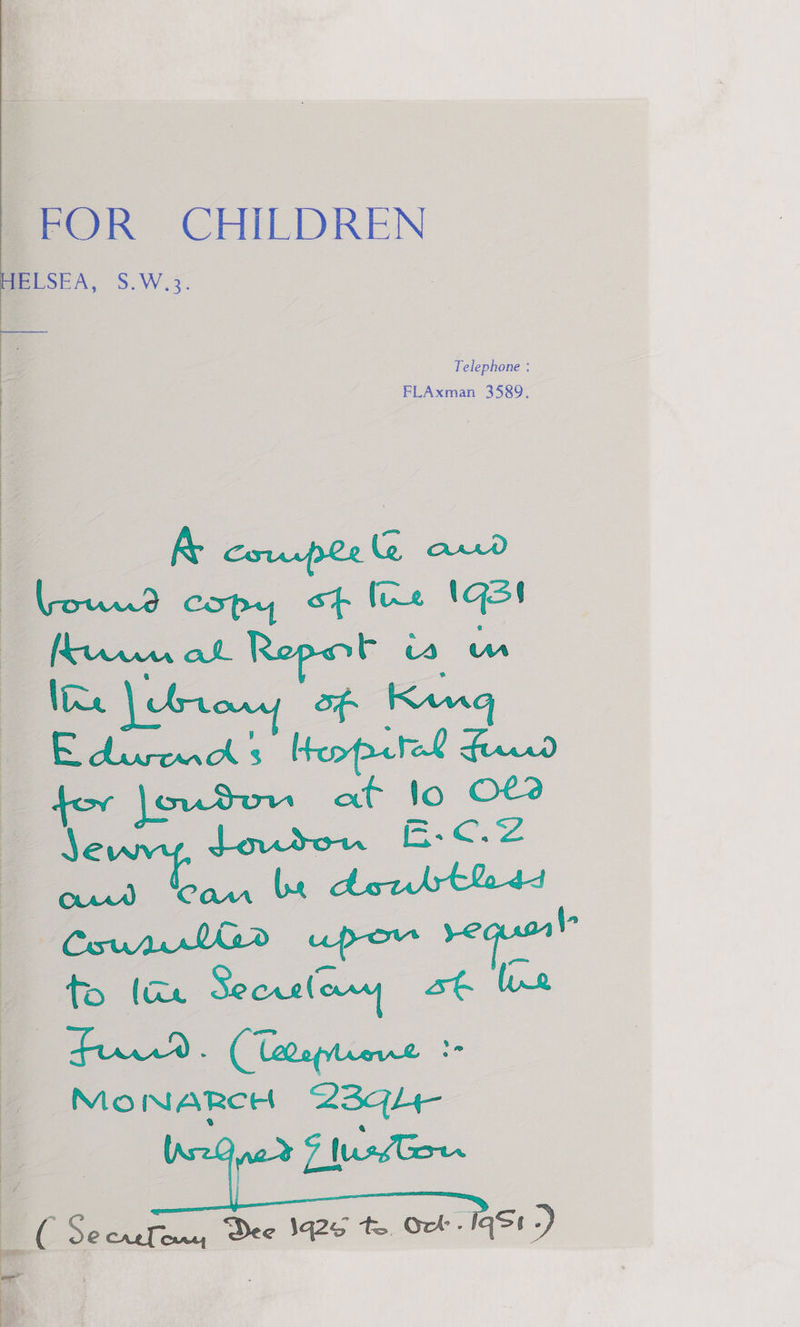 FOR CHILDREN
HELSEA, S.W.3.
Telephone :
FLAxman 3589.
A complete and
bound copy of the 1931
Annual Report is in
the Library of King
Edward's Hospital Fund
for London at 10 Old
Jewry, London E.C.2
and can be doubtless
Consulted upon request
to the Secretary of the
Fund. (Telephone :-
MONARCH 2394
( Secretary Dec 1925 to Oct. 1951.)